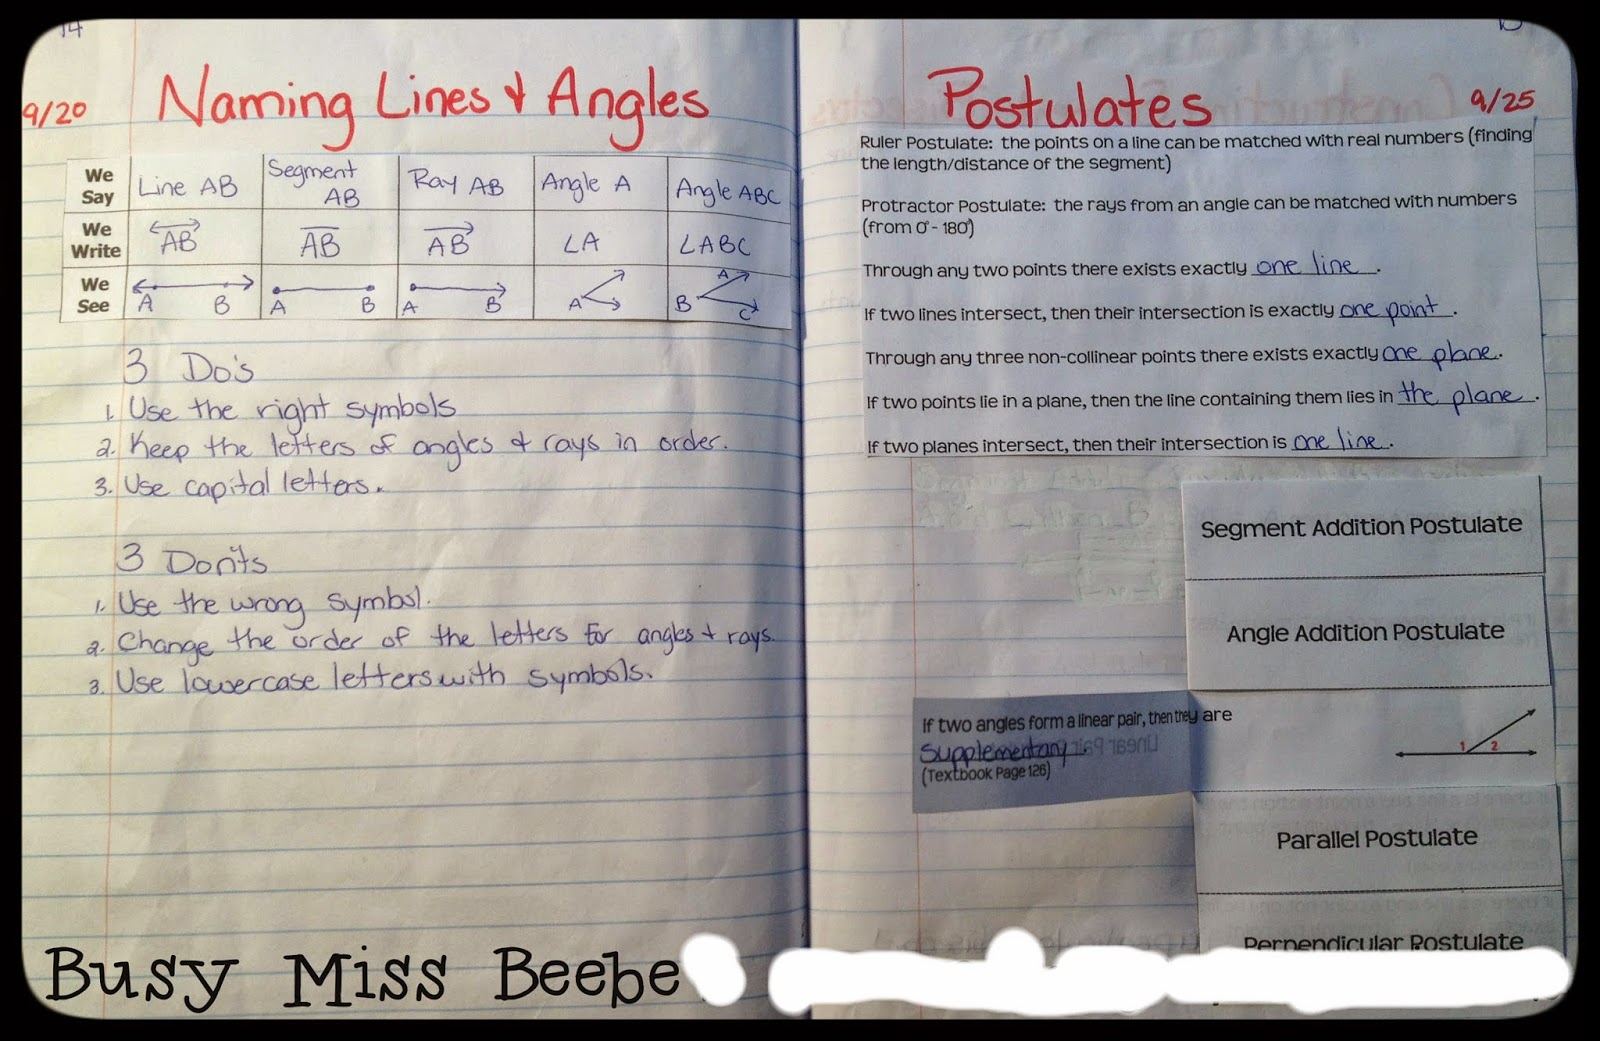 14
9/20 Naming Lines & Angles
We Say Line AB Segment AB Ray AB Angle A Angle ABC
We Write AB AB AB ∠A ∠ABC
We See A B A B A B A B A C
3 Do's
1. Use the right symbols
2. Keep the letters of angles & rays in order.
3. Use capital letters.
3 Don'ts
1. Use the wrong symbol.
2. Change the order of the letters for angles + rays.
3. Use lowercase letters with symbols.
Postulates 9/25
Ruler Postulate: the points on a line can be matched with real numbers (finding
the length/distance of the segment)
Protractor Postulate: the rays from an angle can be matched with numbers
(from 0° - 180°)
Through any two points there exists exactly one line.
If two lines intersect, then their intersection is exactly one point.
Through any three non-collinear points there exists exactly one plane.
If two points lie in a plane, then the line containing them lies in the plane.
If two planes intersect, then their intersection is one line.
Segment Addition Postulate
Angle Addition Postulate
If two angles form a linear pair, then they are
supplementary.
(Textbook Page 126)
1 2
Parallel Postulate
Perpendicular Postulate
Busy Miss Beebe